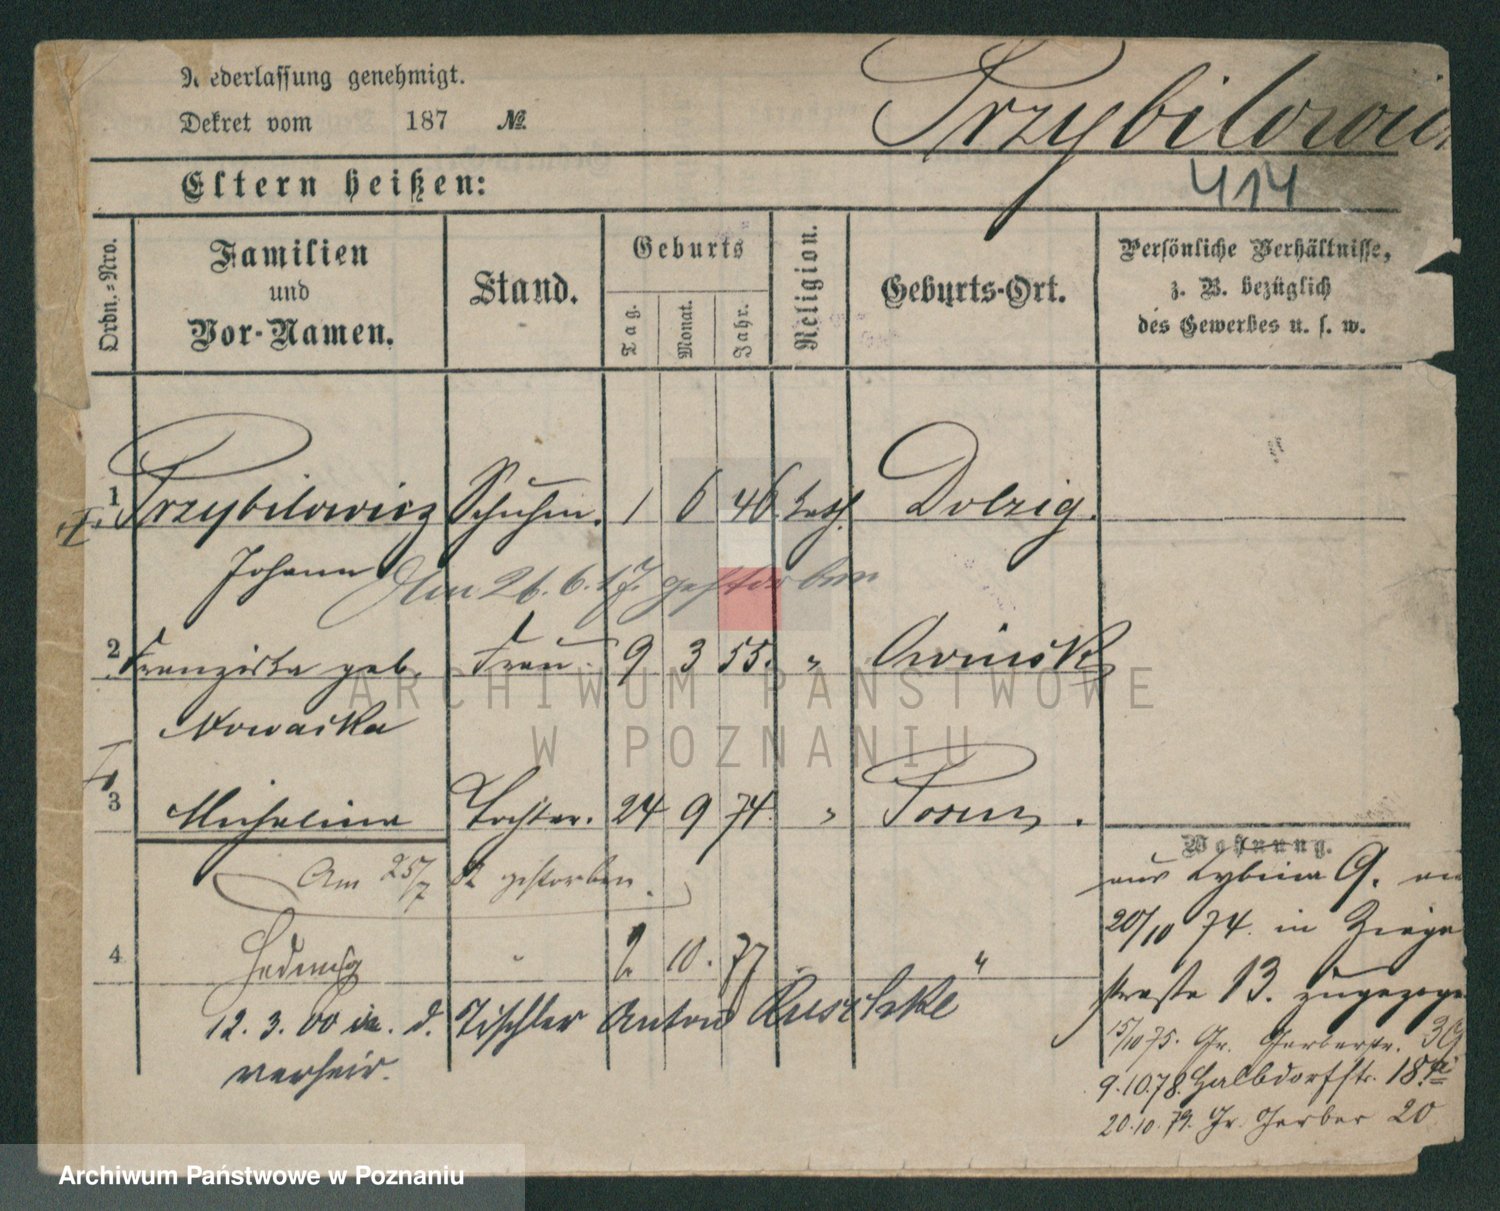 Niederlassung genehmigt.
Dekret vom 187 №
Przybilowicz
414
Eltern heißen:
Ordn.=Nro.
Familien
und
Vor-Namen.
Stand.
Geburts
Tag.
Monat.
Jahr.
Religion.
Geburts-Ort.
Persönliche Verhältnisse,
z. B. bezüglich
des Gewerbes u. s. w.
1 Przybilowicz Schuhm. 1 6 46 kath. Dolzig.
Johann
Am 26.6.17. gestorben
2 Franziska geb. Frau 9 3 55. "
Nowacka
3 Michalina Tochter. 24 9 74. " Posen.
Wohnung.
Am 25/7 gestorben.
aus Zybina 9.
20/10 74. in
4 Hedwig " 2. 10. 77 "
straße 13.
12. 3. 00 d. Tischler Anton
verheir.
15/10 75. Gr. Gerberstr. 39
9.10.78. Halbdorfstr. 18a
20.10.79. Gr. Gerber 20
ARCHIWUM PAŃSTWOWE
W POZNANIU
Archiwum Państwowe w Poznaniu